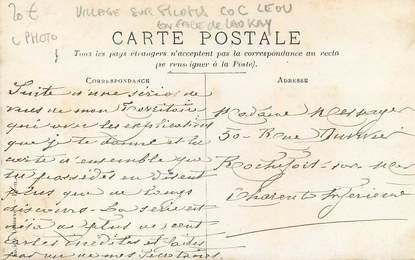 20 €
VILLAGE SUR PILOTIS COC LEOU
EN FACE DE LAO KAY
L PHOTO
CARTE POSTALE
Tous les pays étrangers n'acceptent pas la correspondance au recto
(se renseigner à la Poste).
CORRESPONDANCE
ADRESSE
Suite d'une série de
vues de mon
qui avec les explications
que je te donne et la
carte d'ensemble que
tu possèdes en disent
plus que de longs
discours. La série est
déjà de plus de cent
cartes inédites et faites
par un de mes Secrétaires.
Madame
50 - Rue
Rochefort-sur-Mer
Charente Inférieure